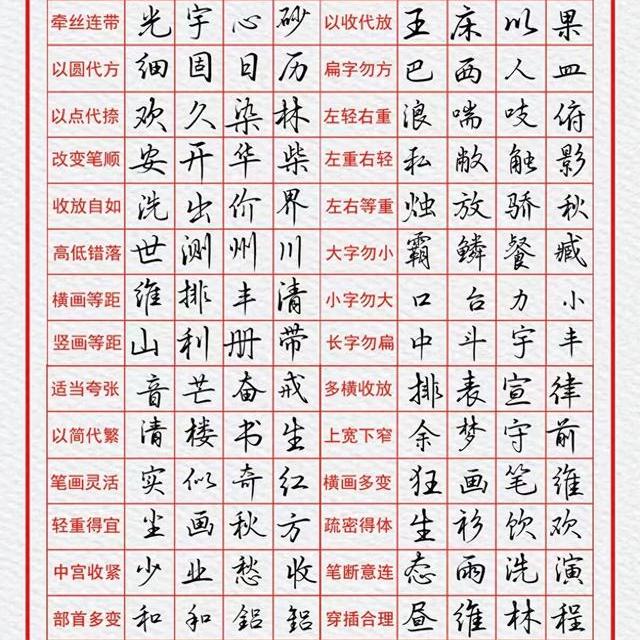 牵丝连带 光 宇 心 砂 以收代放 王 床 以 果
以圆代方 细 固 日 历 扁字勿方 巴 西 人 皿
以点代捺 欢 久 染 林 左轻右重 浪 喘 吱 俯
改变笔顺 安 开 华 柴 左重右轻 私 敝 触 影
收放自如 洗 出 价 界 左右等重 烛 放 骄 秋
高低错落 世 测 州 川 大字勿小 霸 鳞 餐 臧
横画等距 维 排 丰 清 小字勿大 口 台 力 小
竖画等距 山 利 册 带 长字勿扁 中 斗 宇 丰
适当夸张 音 芒 奋 戒 多横收放 排 表 宣 律
以简代繁 清 楼 书 生 上宽下窄 余 梦 守 前
笔画灵活 实 似 奇 红 横画多变 狂 画 笔 维
轻重得宜 尘 画 秋 方 疏密得体 生 衫 饮 欢
中宫收紧 少 业 愁 收 笔断意连 态 雨 洗 演
部首多变 和 和 铝 铝 穿插合理 昼 维 林 程